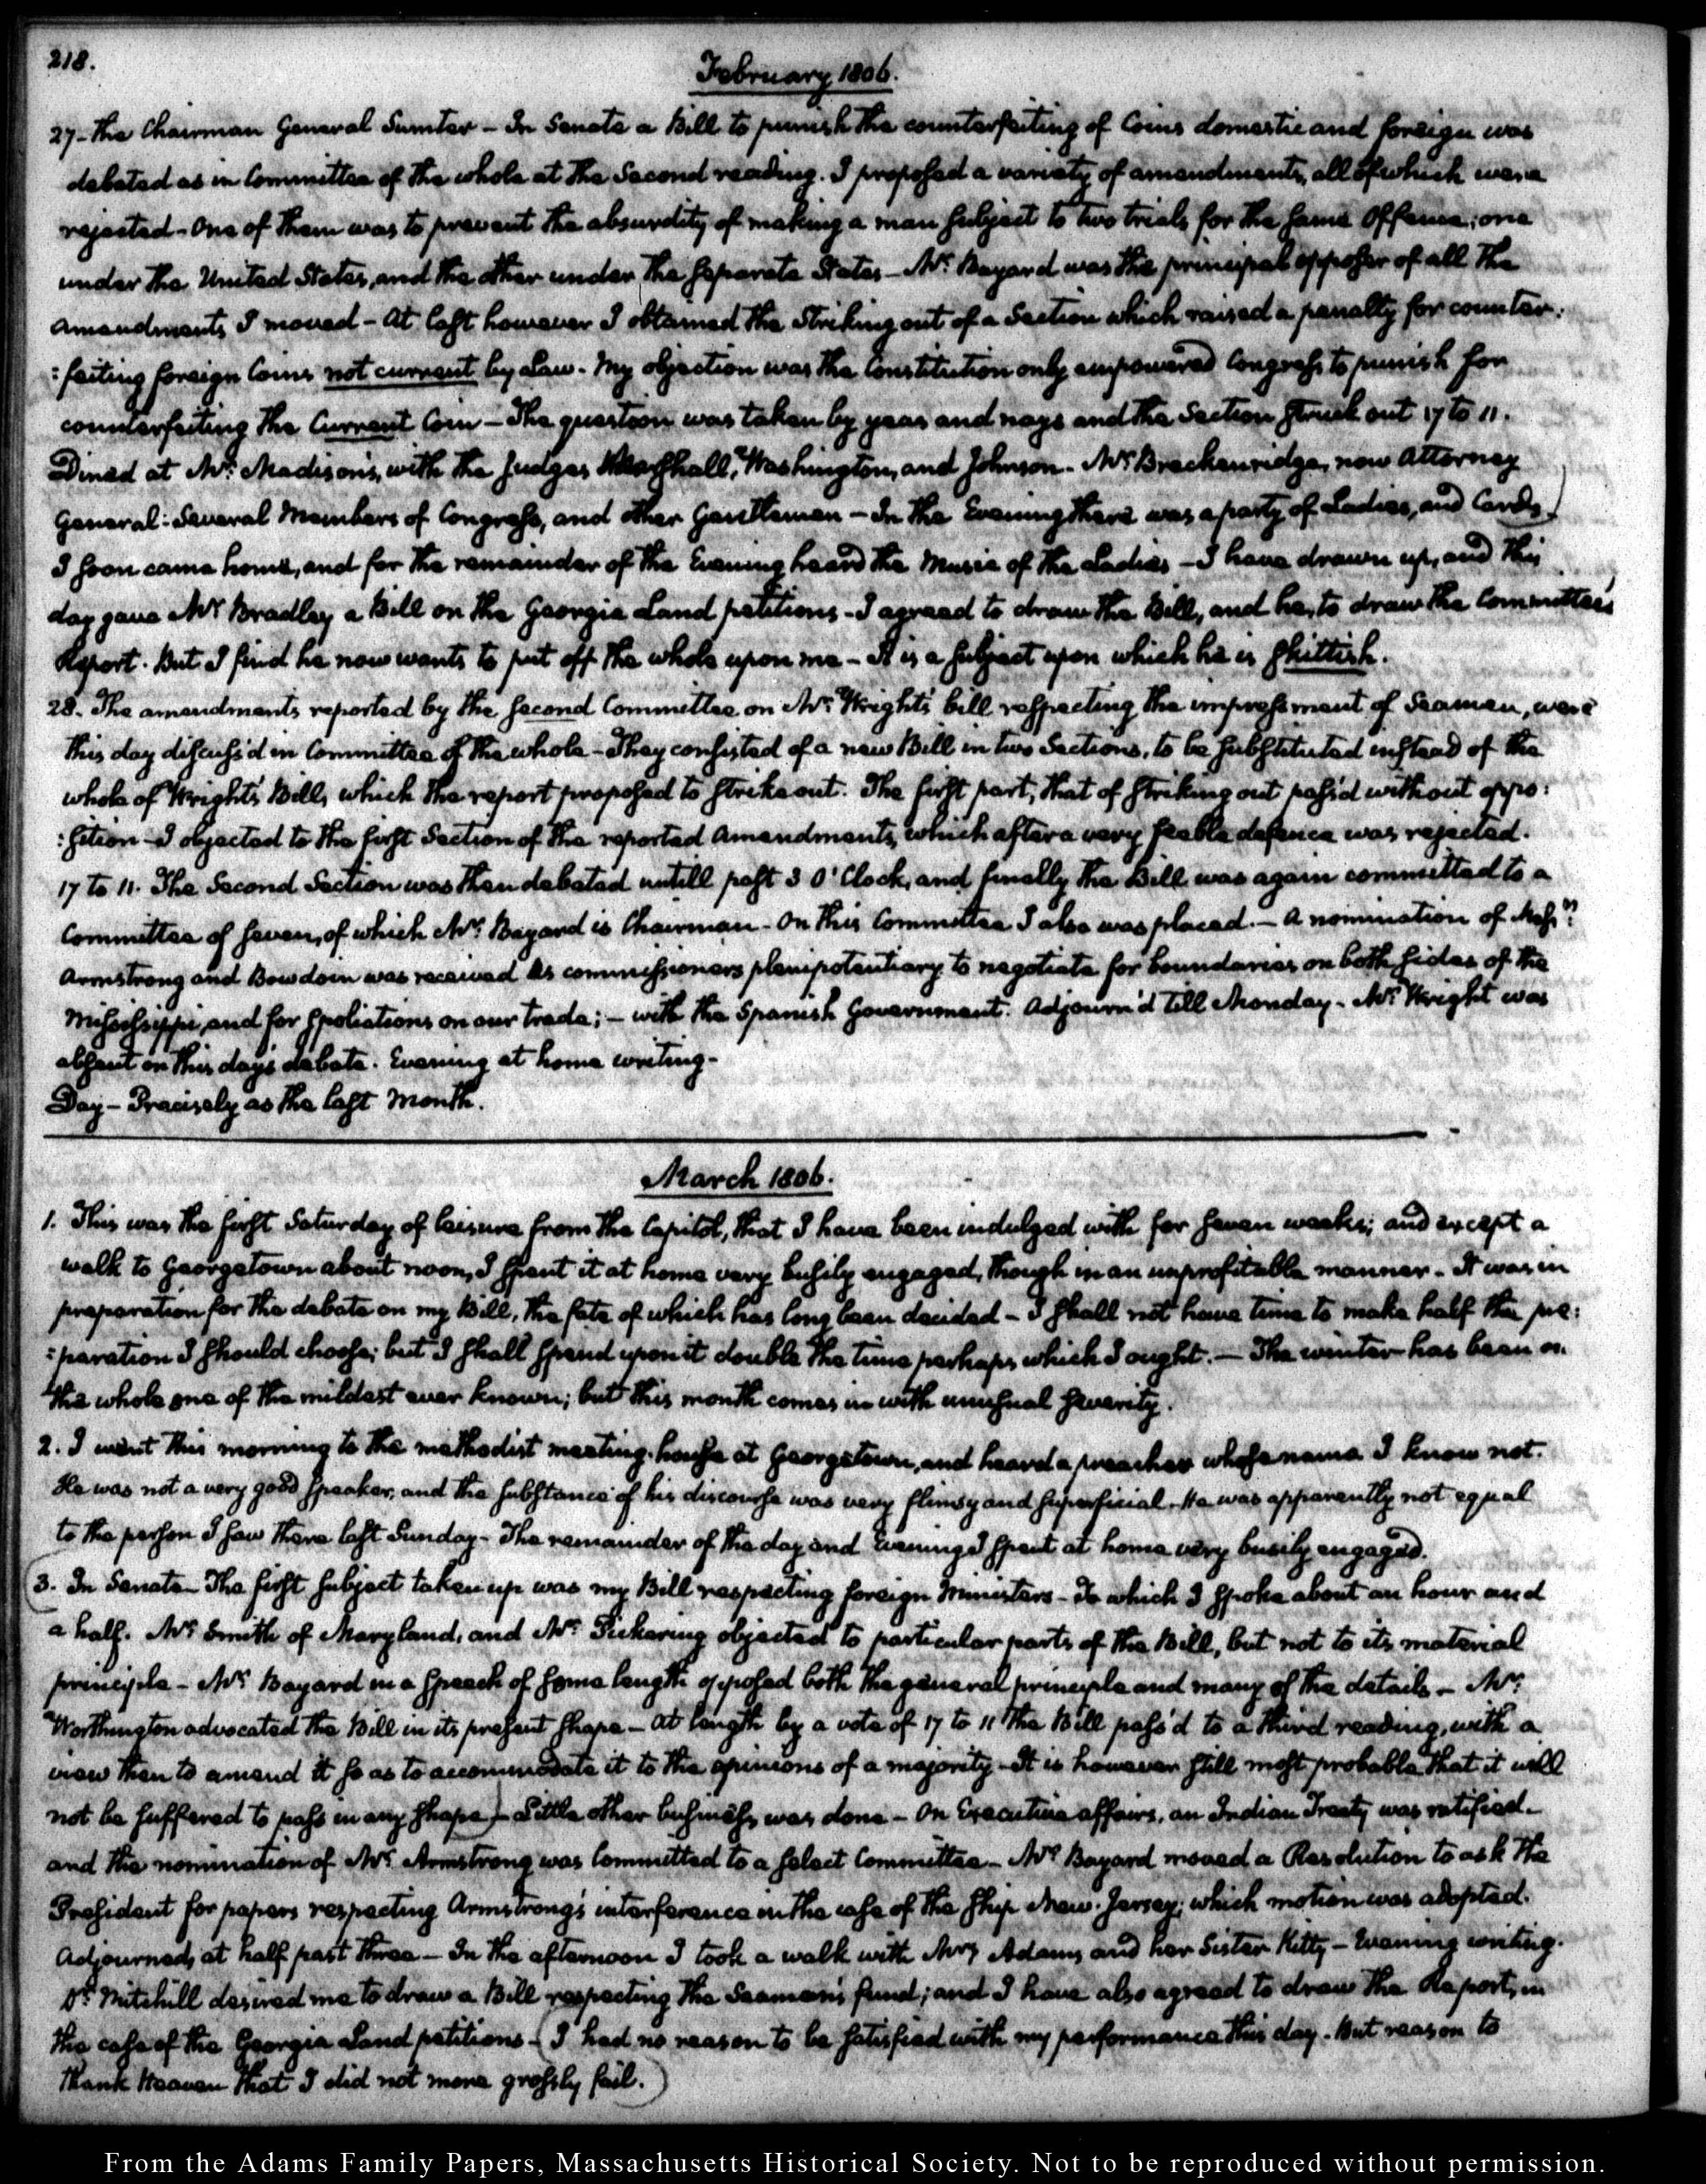 218.
February 1806.
27- The Chairman General Sumter - In Senate a Bill to punish the counterfeiting of Coins domestic and foreign was
debated as in Committee of the whole at the Second reading. I proposed a variety of amendments, all of which were
rejected - One of them was to prevent the absurdity of making a man subject to two trials for the same Offence; one
under the United States, and the other under the separate States - Mr. Bayard was the principal opposer of all the
amendments I moved - At last however I obtained the striking out of a Section which raised a penalty for counter:
:feiting foreign Coins not current by Law. My objection was the Constitution only empowered Congress to punish for
counterfeiting the Current Coin - The question was taken by yeas and nays and the Section struck out 17 to 11.
Dined at Mr. Madison's, with the Judges Marshall, Washington, and Johnson - Mr. Breckenridge, now Attorney
General: Several Members of Congress, and other Gentlemen - In the Evening there was a party of Ladies, and Cards.)
I soon came home, and for the remainder of the Evening heard the Music of the Ladies - I have drawn up, and this
day gave Mr. Bradley a Bill on the Georgia Land petitions - I agreed to draw the Bill, and he, to draw the Committee's
Report. But I find he now wants to put off the whole upon me - It is a subject upon which he is skittish.
28. The amendments reported by the second Committee on Mr. Wright's bill respecting the impressment of Seamen, were
this day discuss'd in Committee of the whole - They consisted of a new Bill in two Sections, to be substituted instead of the
whole of Wright's Bill, which the report proposed to strike out. The first part, that of striking out pass'd without oppo:
:sition - I objected to the first Section of the reported Amendments, which after a very feeble defence was rejected.
17 to 11. The Second Section was then debated untill past 3 O'Clock, and finally the Bill was again committed to a
Committee of seven, of which Mr. Bayard is Chairman - On this Committee I also was placed. - A nomination of Messrs.
Armstrong and Bowdoin was received as commissioners plenipotentiary to negotiate for boundaries on both sides of the
Mississippi, and for spoliations on our trade; - with the Spanish Government. Adjourn'd till Monday - Mr. Wright was
absent on this day's debate. Evening at home writing -
Day - Precisely as the last Month.
March 1806.
1. This was the first Saturday of leisure from the Capitol, that I have been indulged with for seven weeks; and except a
walk to Georgetown about noon, I spent it at home very busily engaged, though in an unprofitable manner - It was in
preparation for the debate on my Bill, the fate of which has long been decided - I shall not have time to make half the pre:
:paration I should choose; but I shall spend upon it double the time perhaps which I ought. - The winter has been on
the whole one of the mildest ever known; but this month comes in with unusual severity.
2. I went this morning to the methodist meeting-house at Georgetown, and heard a preacher whose name I know not.
He was not a very good speaker, and the substance of his discourse was very flimsy and superficial. He was apparently not equal
to the person I saw there last Sunday - The remainder of the day and Evening I spent at home very busily engaged.
(3. In Senate - The first subject taken up was my Bill respecting foreign Ministers - To which I spoke about an hour and
a half. Mr. Smith of Maryland, and Mr. Pickering objected to particular parts of the Bill, but not to its material
principle - Mr. Bayard in a speech of some length opposed both the general principle and many of the details - Mr.
Worthington advocated the Bill in its present shape - At length by a vote of 17 to 11 the Bill pass'd to a third reading, with a
view then to amend it so as to accommodate it to the opinions of a majority - It is however still most probable that it will
not be suffered to pass in any shape) - Little other business was done - On Executive affairs, an Indian Treaty was ratified -
and the nomination of Mr. Armstrong was Committed to a select Committee - Mr. Bayard moved a Resolution to ask the
President for papers respecting Armstrong's interference in the case of the Ship New-Jersey; which motion was adopted.
Adjourned, at half past three - In the afternoon I took a walk with Mrs. Adams and her Sister Kitty - Evening writing.
Dr. Mitchill desired me to draw a Bill respecting the Seamen's fund; and I have also agreed to draw the Report, in
the case of the Georgia Land petitions - (I had no reason to be satisfied with my performance this day. But reason to
thank Heaven that I did not more grossly fail.)
From the Adams Family Papers, Massachusetts Historical Society. Not to be reproduced without permission.